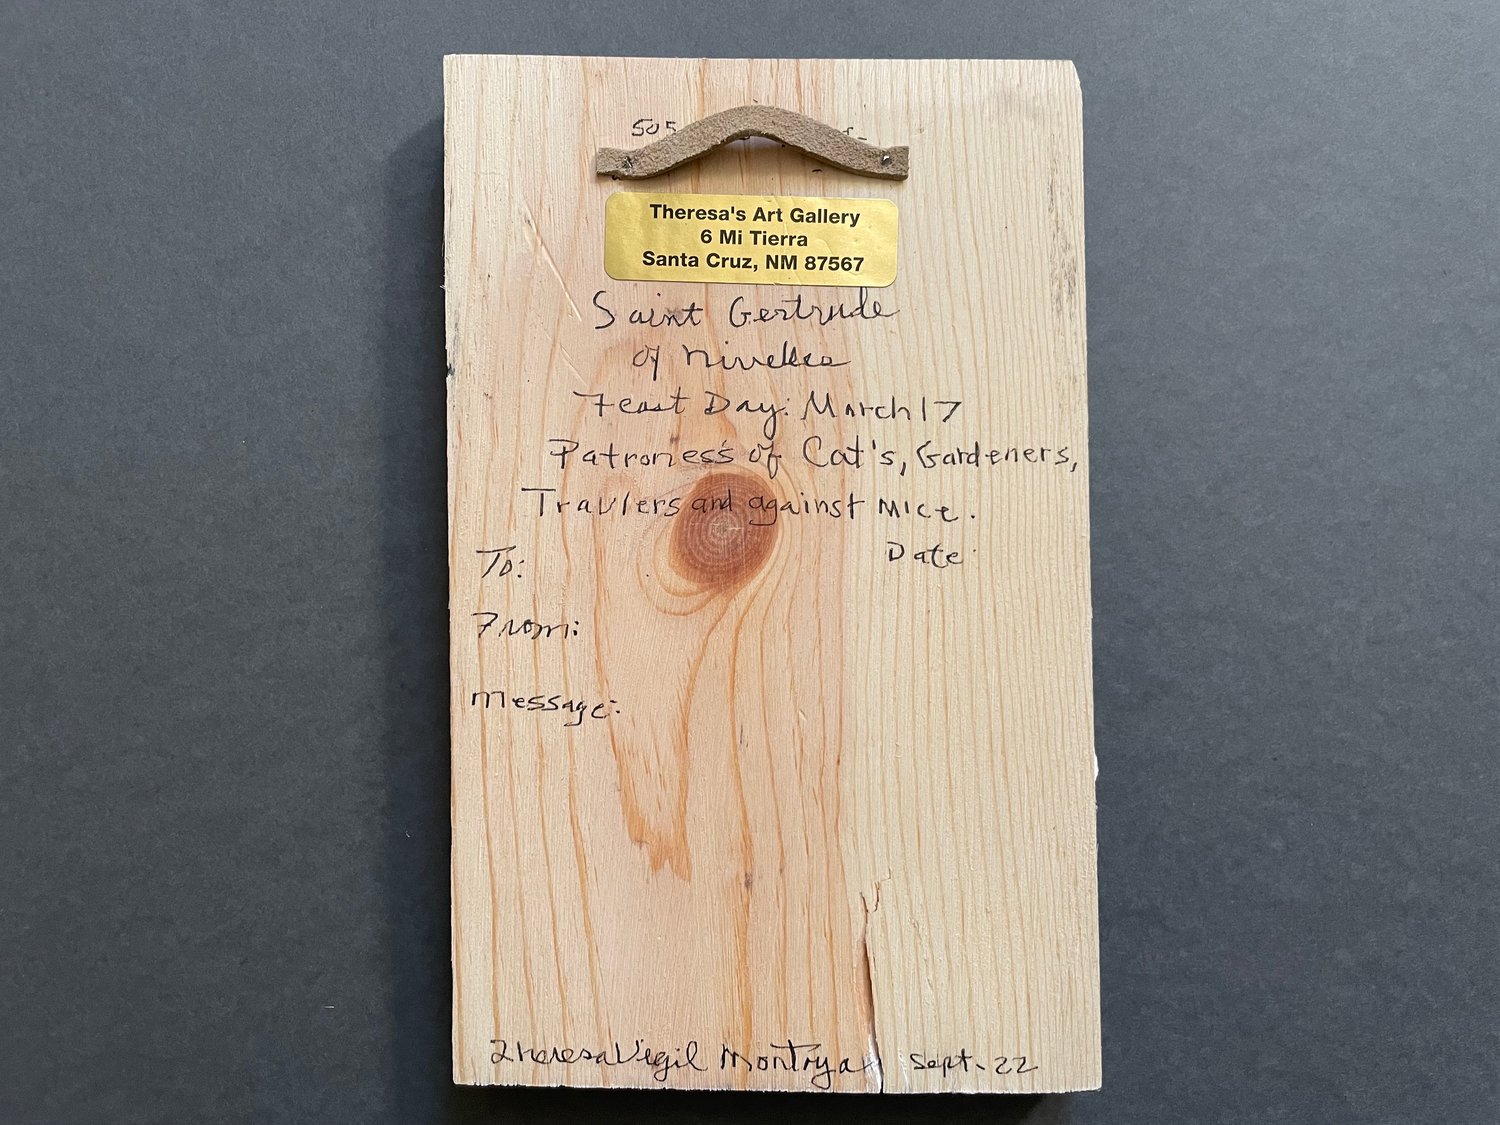 505
Theresa's Art Gallery
6 Mi Tierra
Santa Cruz, NM 87567
Saint Gertrude
of Nivelles
Feast Day: March 17
Patroness of Cat's, Gardeners,
Travlers and against Mice.
Date
To:
From:
Message:
Theresa Vigil Montoya Sept. 22